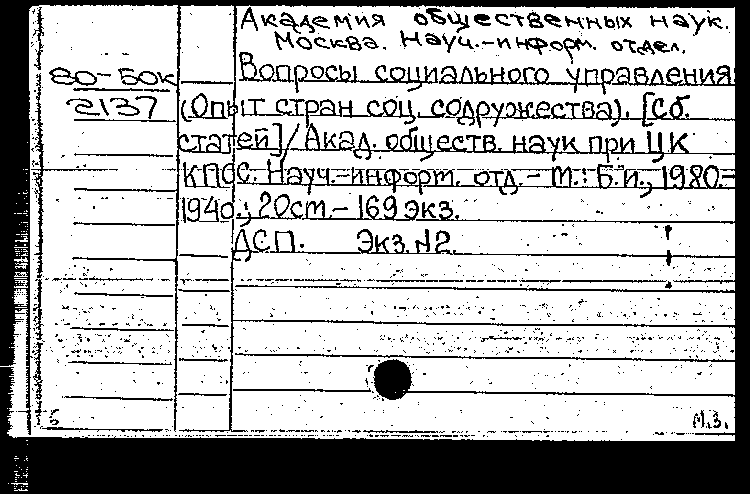 Академия общественных наук.
Москва. Науч.-информ. отдел.
80-БОК
2137
Вопросы социального управления
(Опыт стран соц. содружества). [Сб.
статей]/Акад. обществ. наук при ЦК
КПСС. Науч.-информ. отд.- М.: Б.и., 1980.-
194с.; 20см.- 169 экз.
ДСП. Экз. N2.
Б
М.З.